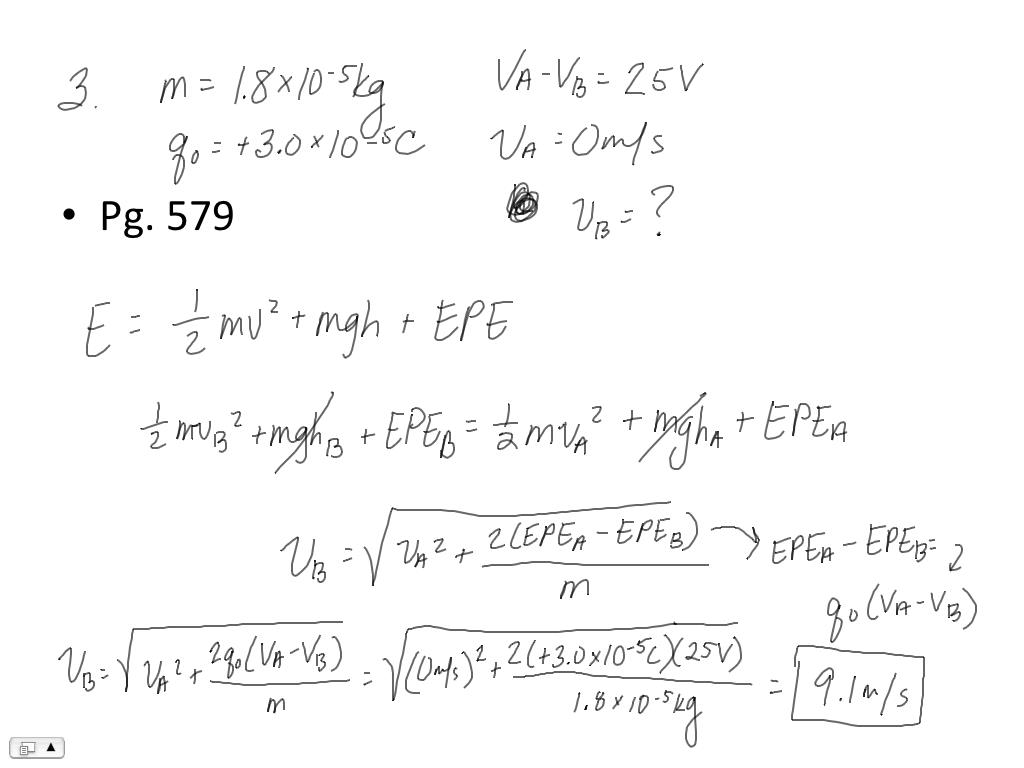 3. m = 1.8×10⁻⁵kg V_A - V_B = 25V
q₀ = +3.0×10⁻⁵C v_A = 0m/s
• Pg. 579 v_B = ?
E = 1/2 mv² + mgh + EPE
1/2 mv_B² + mgh_B + EPE_B = 1/2 mv_A² + mgh_A + EPE_A
v_B = √(v_A² + 2(EPE_A - EPE_B)/m) → EPE_A - EPE_B =
q₀(V_A - V_B)
v_B = √(v_A² + 2q₀(V_A - V_B)/m) = √((0m/s)² + 2(+3.0×10⁻⁵C)(25V)/1.8×10⁻⁵kg) = 9.1m/s